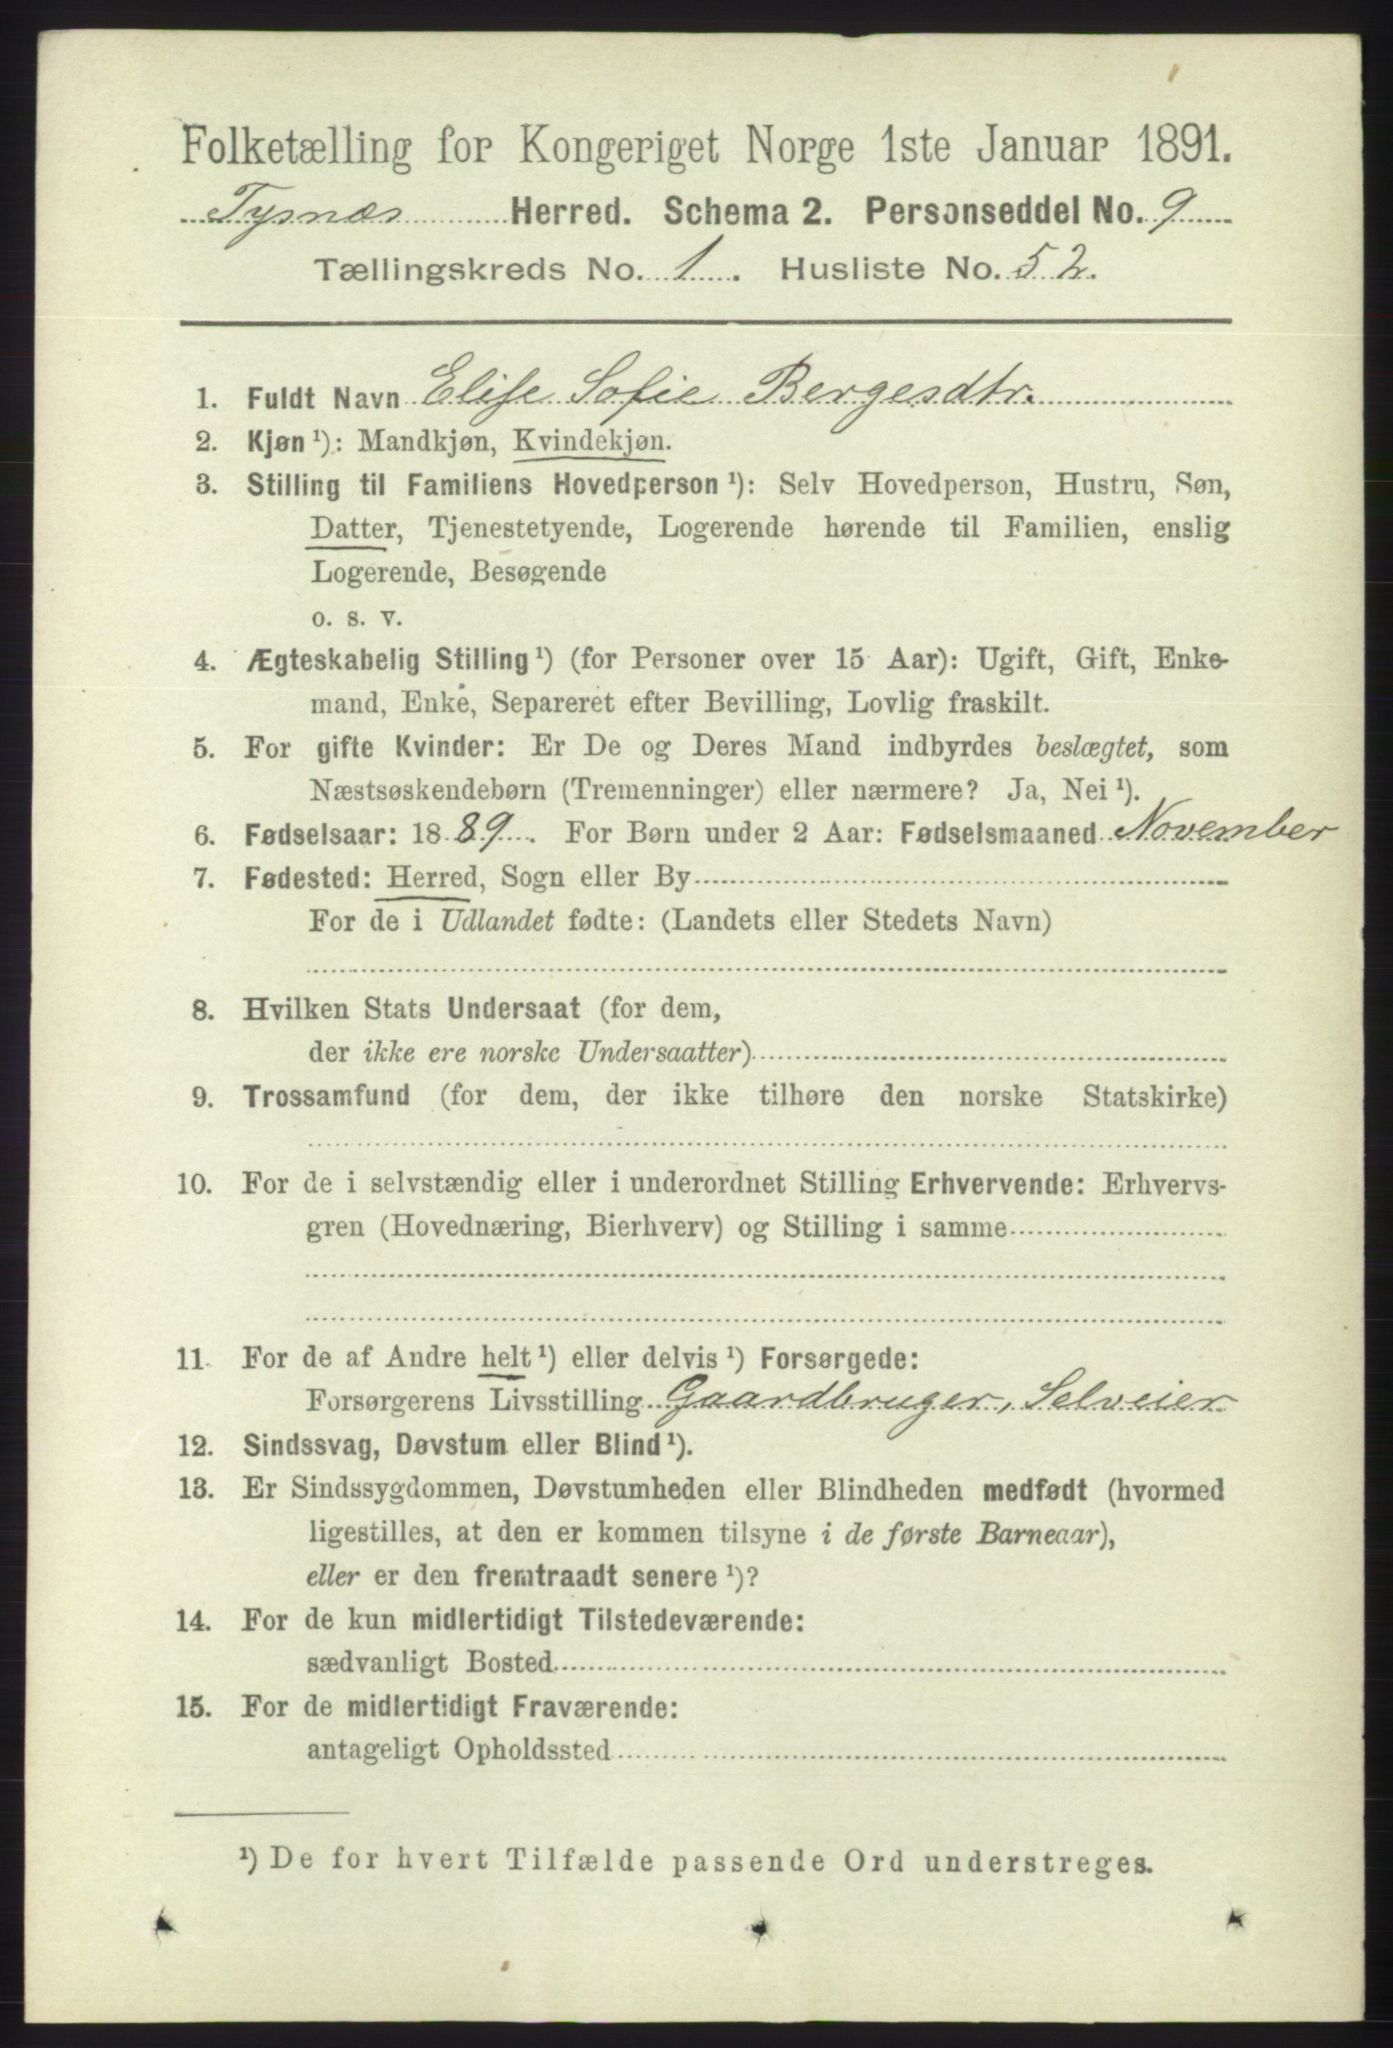 Folketælling for Kongeriget Norge 1ste Januar 1891.
Tysnæs Herred. Schema 2. Personseddel No. 9
Tællingskreds No. 1. Husliste No. 52.
1. Fuldt Navn Elise Sofie Bergesdtr.
2. Kjøn ¹): Mandkjøn, Kvindekjøn.
3. Stilling til Familiens Hovedperson ¹): Selv Hovedperson, Hustru, Søn,
Datter, Tjenestetyende, Logerende hørende til Familien, enslig
Logerende, Besøgende
o. s. v.
4. Ægteskabelig Stilling ¹) (for Personer over 15 Aar): Ugift, Gift, Enke-
mand, Enke, Separeret efter Bevilling, Lovlig fraskilt.
5. For gifte Kvinder: Er De og Deres Mand indbyrdes beslægtet, som
Næstsøskendebørn (Tremenninger) eller nærmere? Ja, Nei ¹).
6. Fødselsaar: 1889. For Børn under 2 Aar: Fødselsmaaned November
7. Fødested: Herred, Sogn eller By
For de i Udlandet fødte: (Landets eller Stedets Navn)
8. Hvilken Stats Undersaat (for dem,
der ikke ere norske Undersaatter)
9. Trossamfund (for dem, der ikke tilhøre den norske Statskirke)
10. For de i selvstændig eller i underordnet Stilling Erhvervende: Erhvervs-
gren (Hovednæring, Bierhverv) og Stilling i samme
11. For de af Andre helt ¹) eller delvis ¹) Forsørgede:
Forsørgerens Livsstilling Gaardbruger, Selveier
12. Sindssvag, Døvstum eller Blind ¹).
13. Er Sindssygdommen, Døvstumheden eller Blindheden medfødt (hvormed
ligestilles, at den er kommen tilsyne i de første Barneaar),
eller er den fremtraadt senere ¹)?
14. For de kun midlertidigt Tilstedeværende:
sædvanligt Bosted
15. For de midlertidigt Fraværende:
antageligt Opholdssted
¹) De for hvert Tilfælde passende Ord understreges.